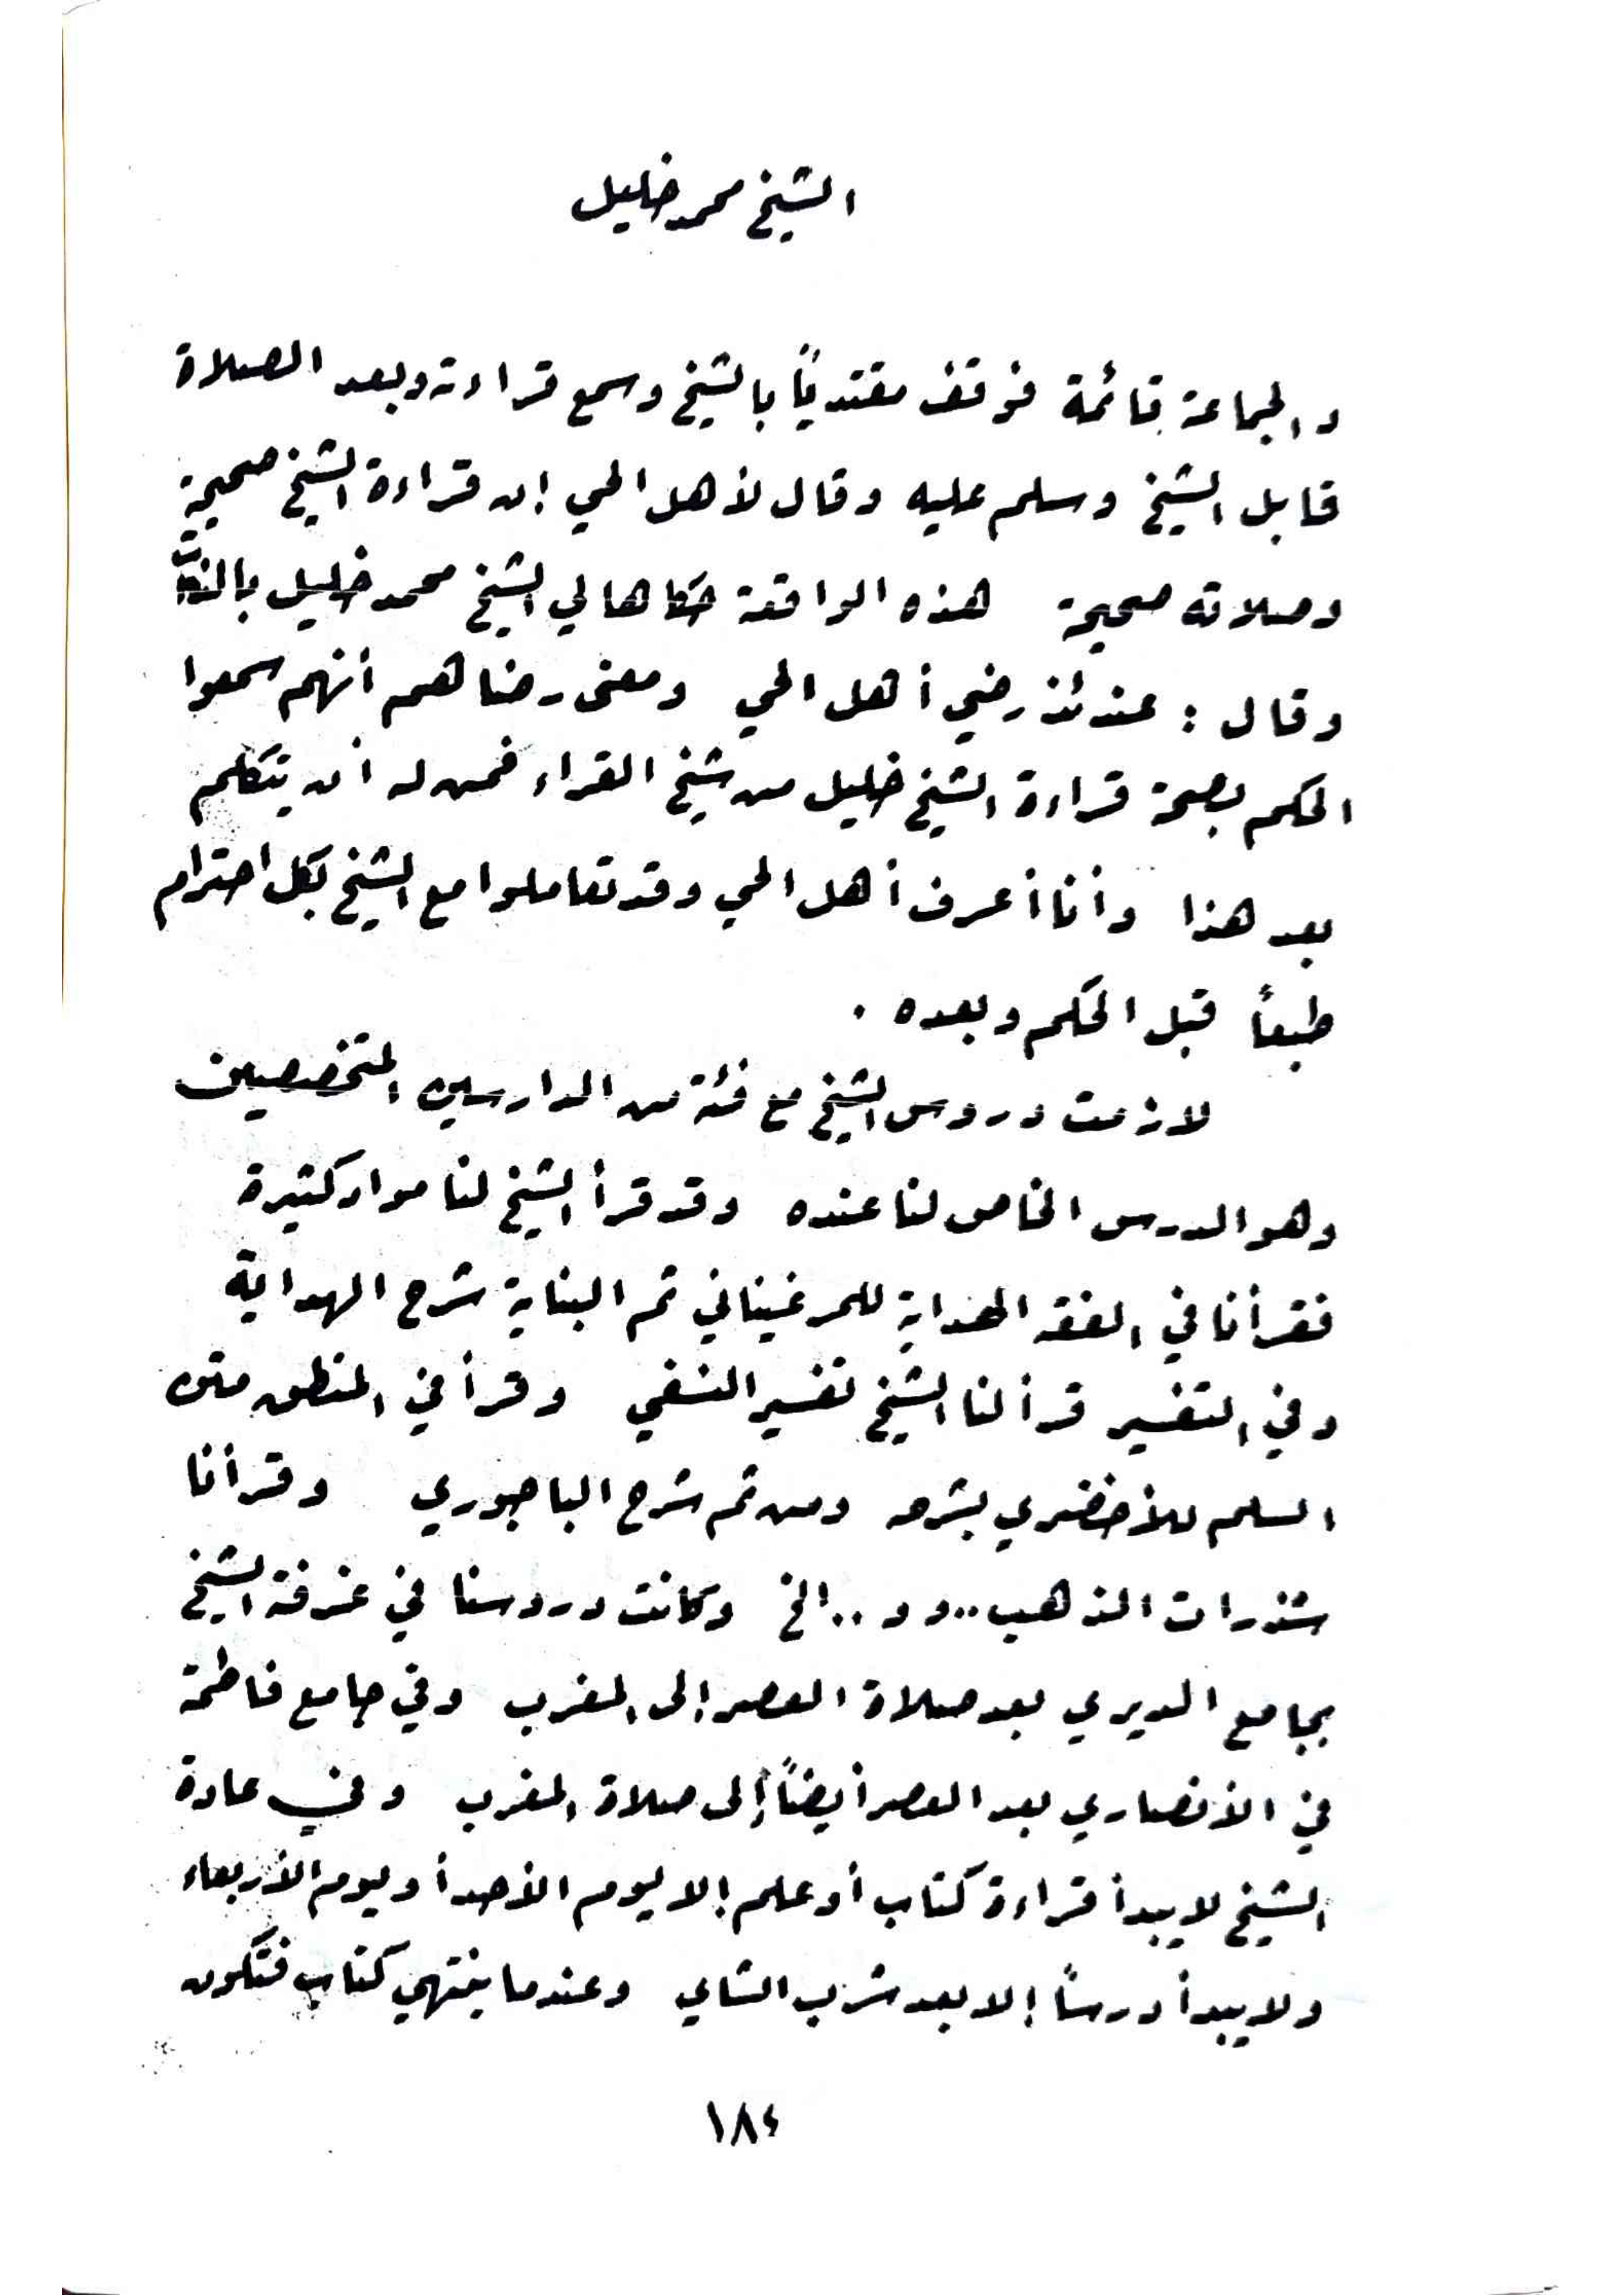 الشيخ محمد خليل
والجماعة قائمة فوقف مقتدياً بالشيخ وسمع قراءته وبعد الصلاة
قابل الشيخ وسلم عليه وقال لأهل الحي إن قراءة الشيخ صحيحة
وصلاته صحيحة هذه الواقعة حكاها لي الشيخ محمد خليل بالذات
وقال : عندئذ رضي أهل الحي ومعنى رضاهم أنهم سمعوا
الحكم بصحة قراءة الشيخ خليل من شيخ القراء فمن له أن يتكلم
بعد هذا وأنا أعرف أهل الحي وقد تعاملوا مع الشيخ بكل احترام
طبعاً قبل الحكم وبعده .
لازمت دروس الشيخ مع فئة من الدارسين المتخصصين
وهو الدرس الخاص لنا عنده وقد قرأ الشيخ لنا مواد كثيرة
فقرأنا في الفقه الهداية للمرغيناني ثم البناية شرح الهداية
وفي التفسير قرأ لنا الشيخ تفسير النسفي وقرأ في المنطق متن
السلم للأخضري بشرحه ومن ثم شرح الباجوري وقرأنا
شذرات الذهب .. و و .. الخ وكانت دروسنا في غرفة الشيخ
بجامع الديري بعد صلاة العصر إلى المغرب وفي جامع فاطمة
في الأنصاري بعد العصر أيضاً إلى صلاة المغرب وفي عادة
الشيخ لا يبدأ قراءة كتاب أو علم إلا يوم الأحد أو يوم الأربعاء
ولا يبدأ درساً إلا بعد شرب الشاي وعندما ينتهي كتاب فتكون
١٨٤